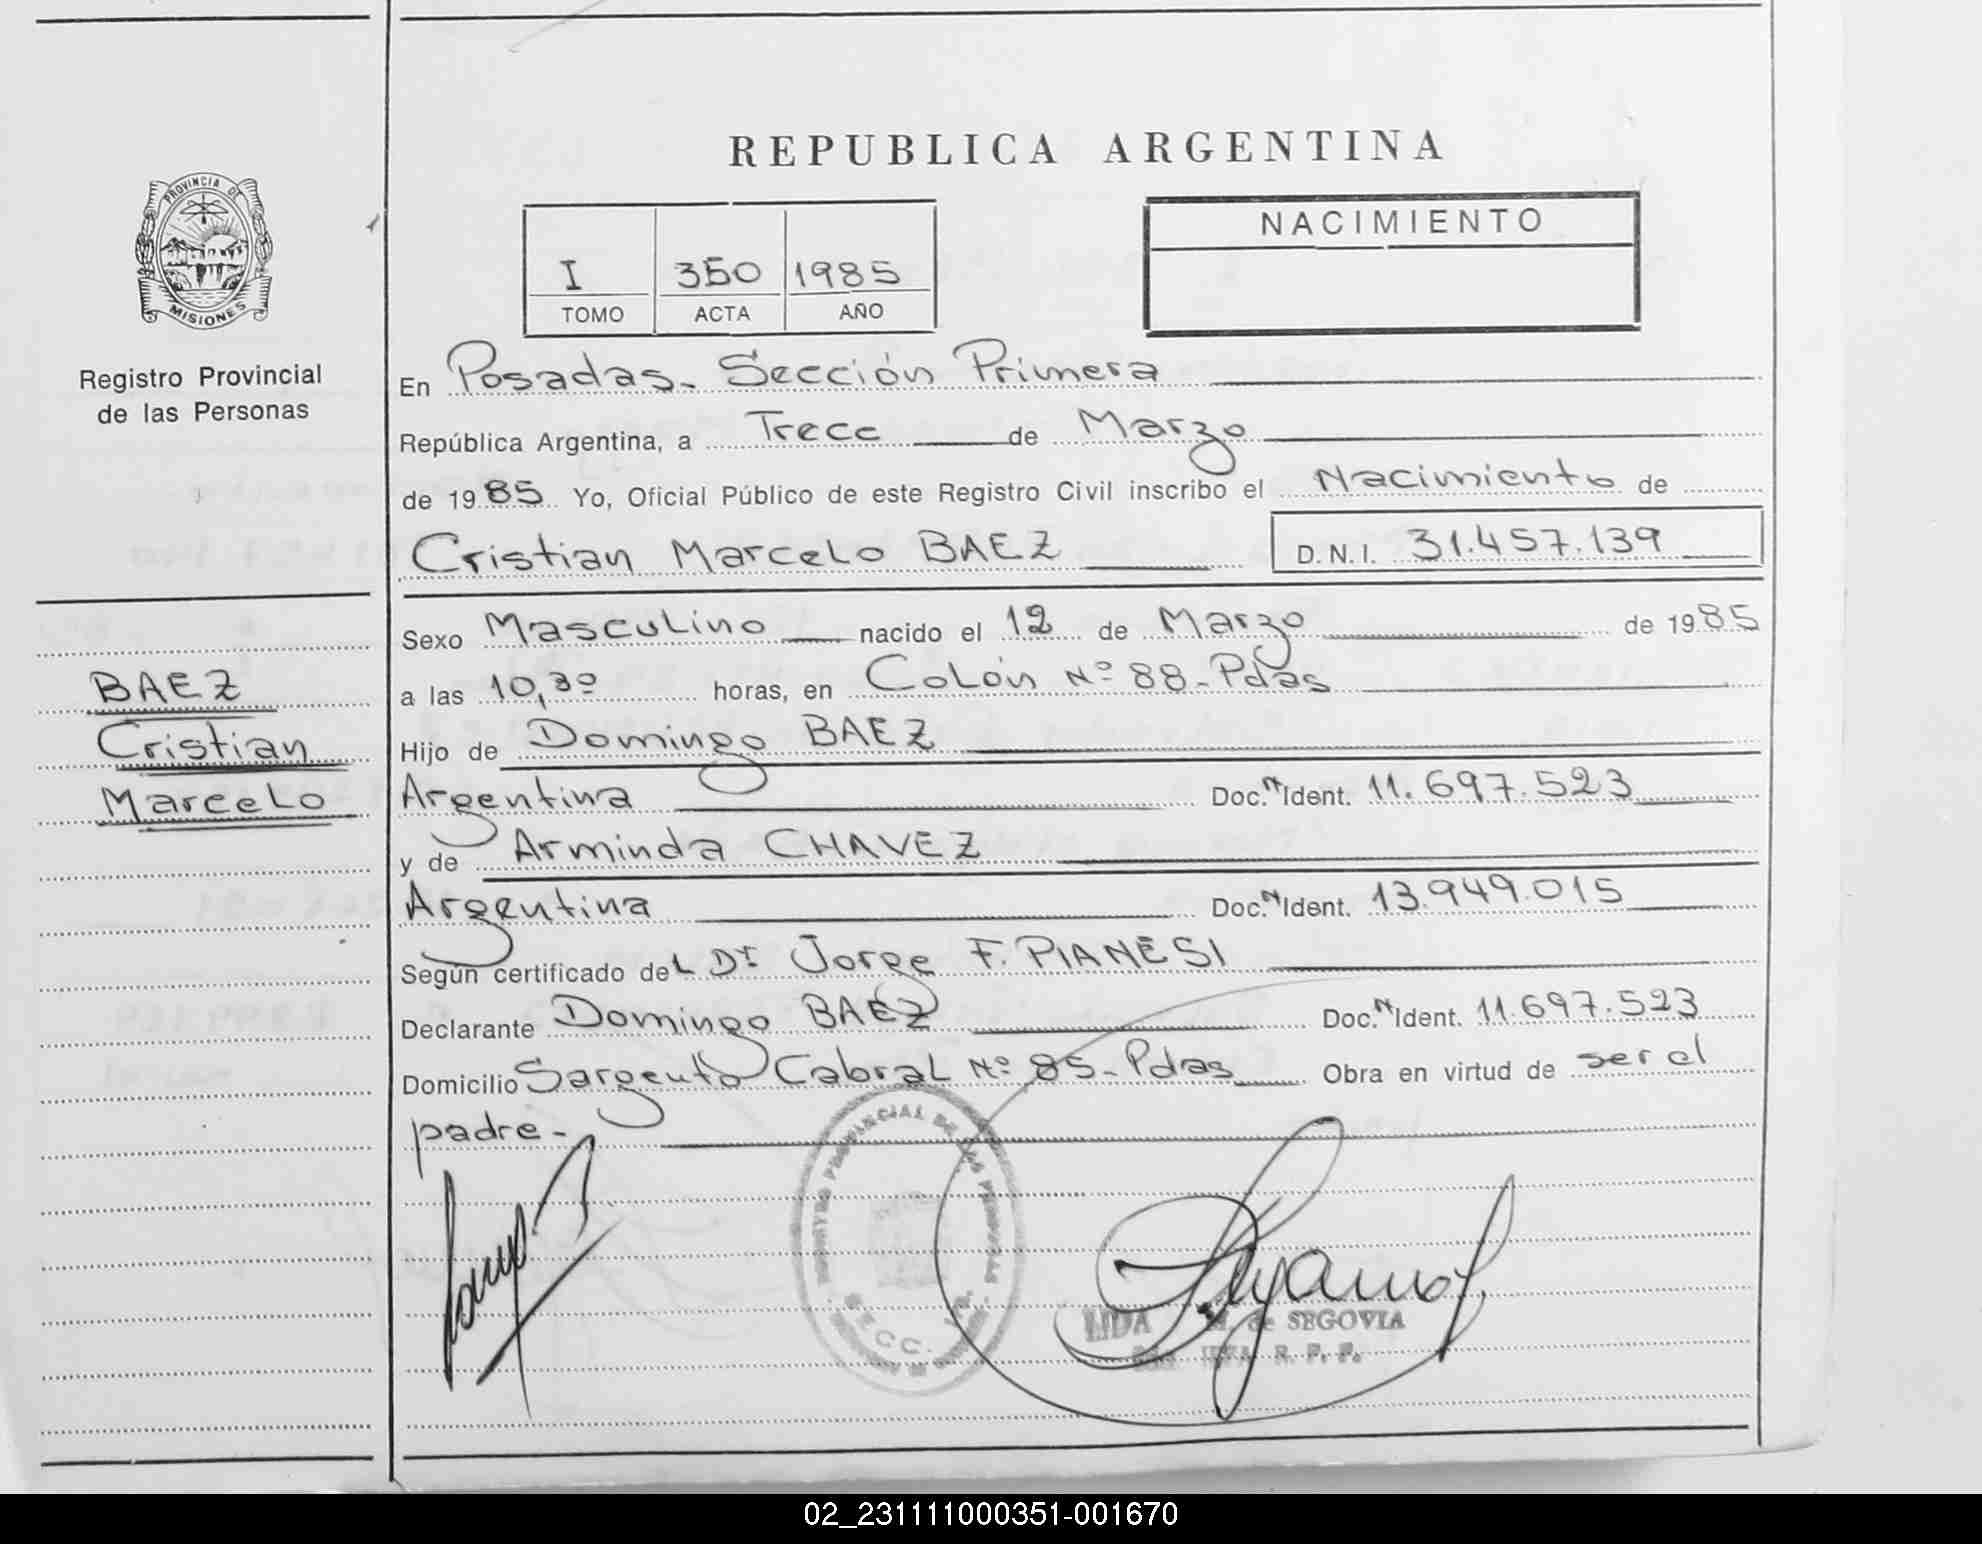 REPUBLICA ARGENTINA
PROVINCIA DE
MISIONES
Registro Provincial
de las Personas
I 350 1985
TOMO ACTA AÑO
NACIMIENTO
En Posadas. Sección Primera
República Argentina, a Trece de Marzo
de 1985 Yo, Oficial Público de este Registro Civil inscribo el Nacimiento de
Cristian Marcelo BAEZ D.N.I. 31.457.139
Sexo Masculino nacido el 12 de Marzo de 1985
a las 10,30 horas, en Colón Nº 88-Pdas
Hijo de Domingo BAEZ
Argentina Doc.N Ident. 11.697.523
y de Arminda CHAVEZ
Argentina Doc.N Ident. 13.949.015
Según certificado del Dr Jorge F. PIANESI
Declarante Domingo BAEZ Doc.N Ident. 11.697.523
Domicilio Sargento Cabral Nº 85-Pdas Obra en virtud de ser el
padre-
BAEZ
Cristian
Marcelo
REGISTRO PROVINCIAL DE LAS PERSONAS
SECC. 1ra.
LIDA M. de SEGOVIA
R. P. P.
02_231111000351-001670